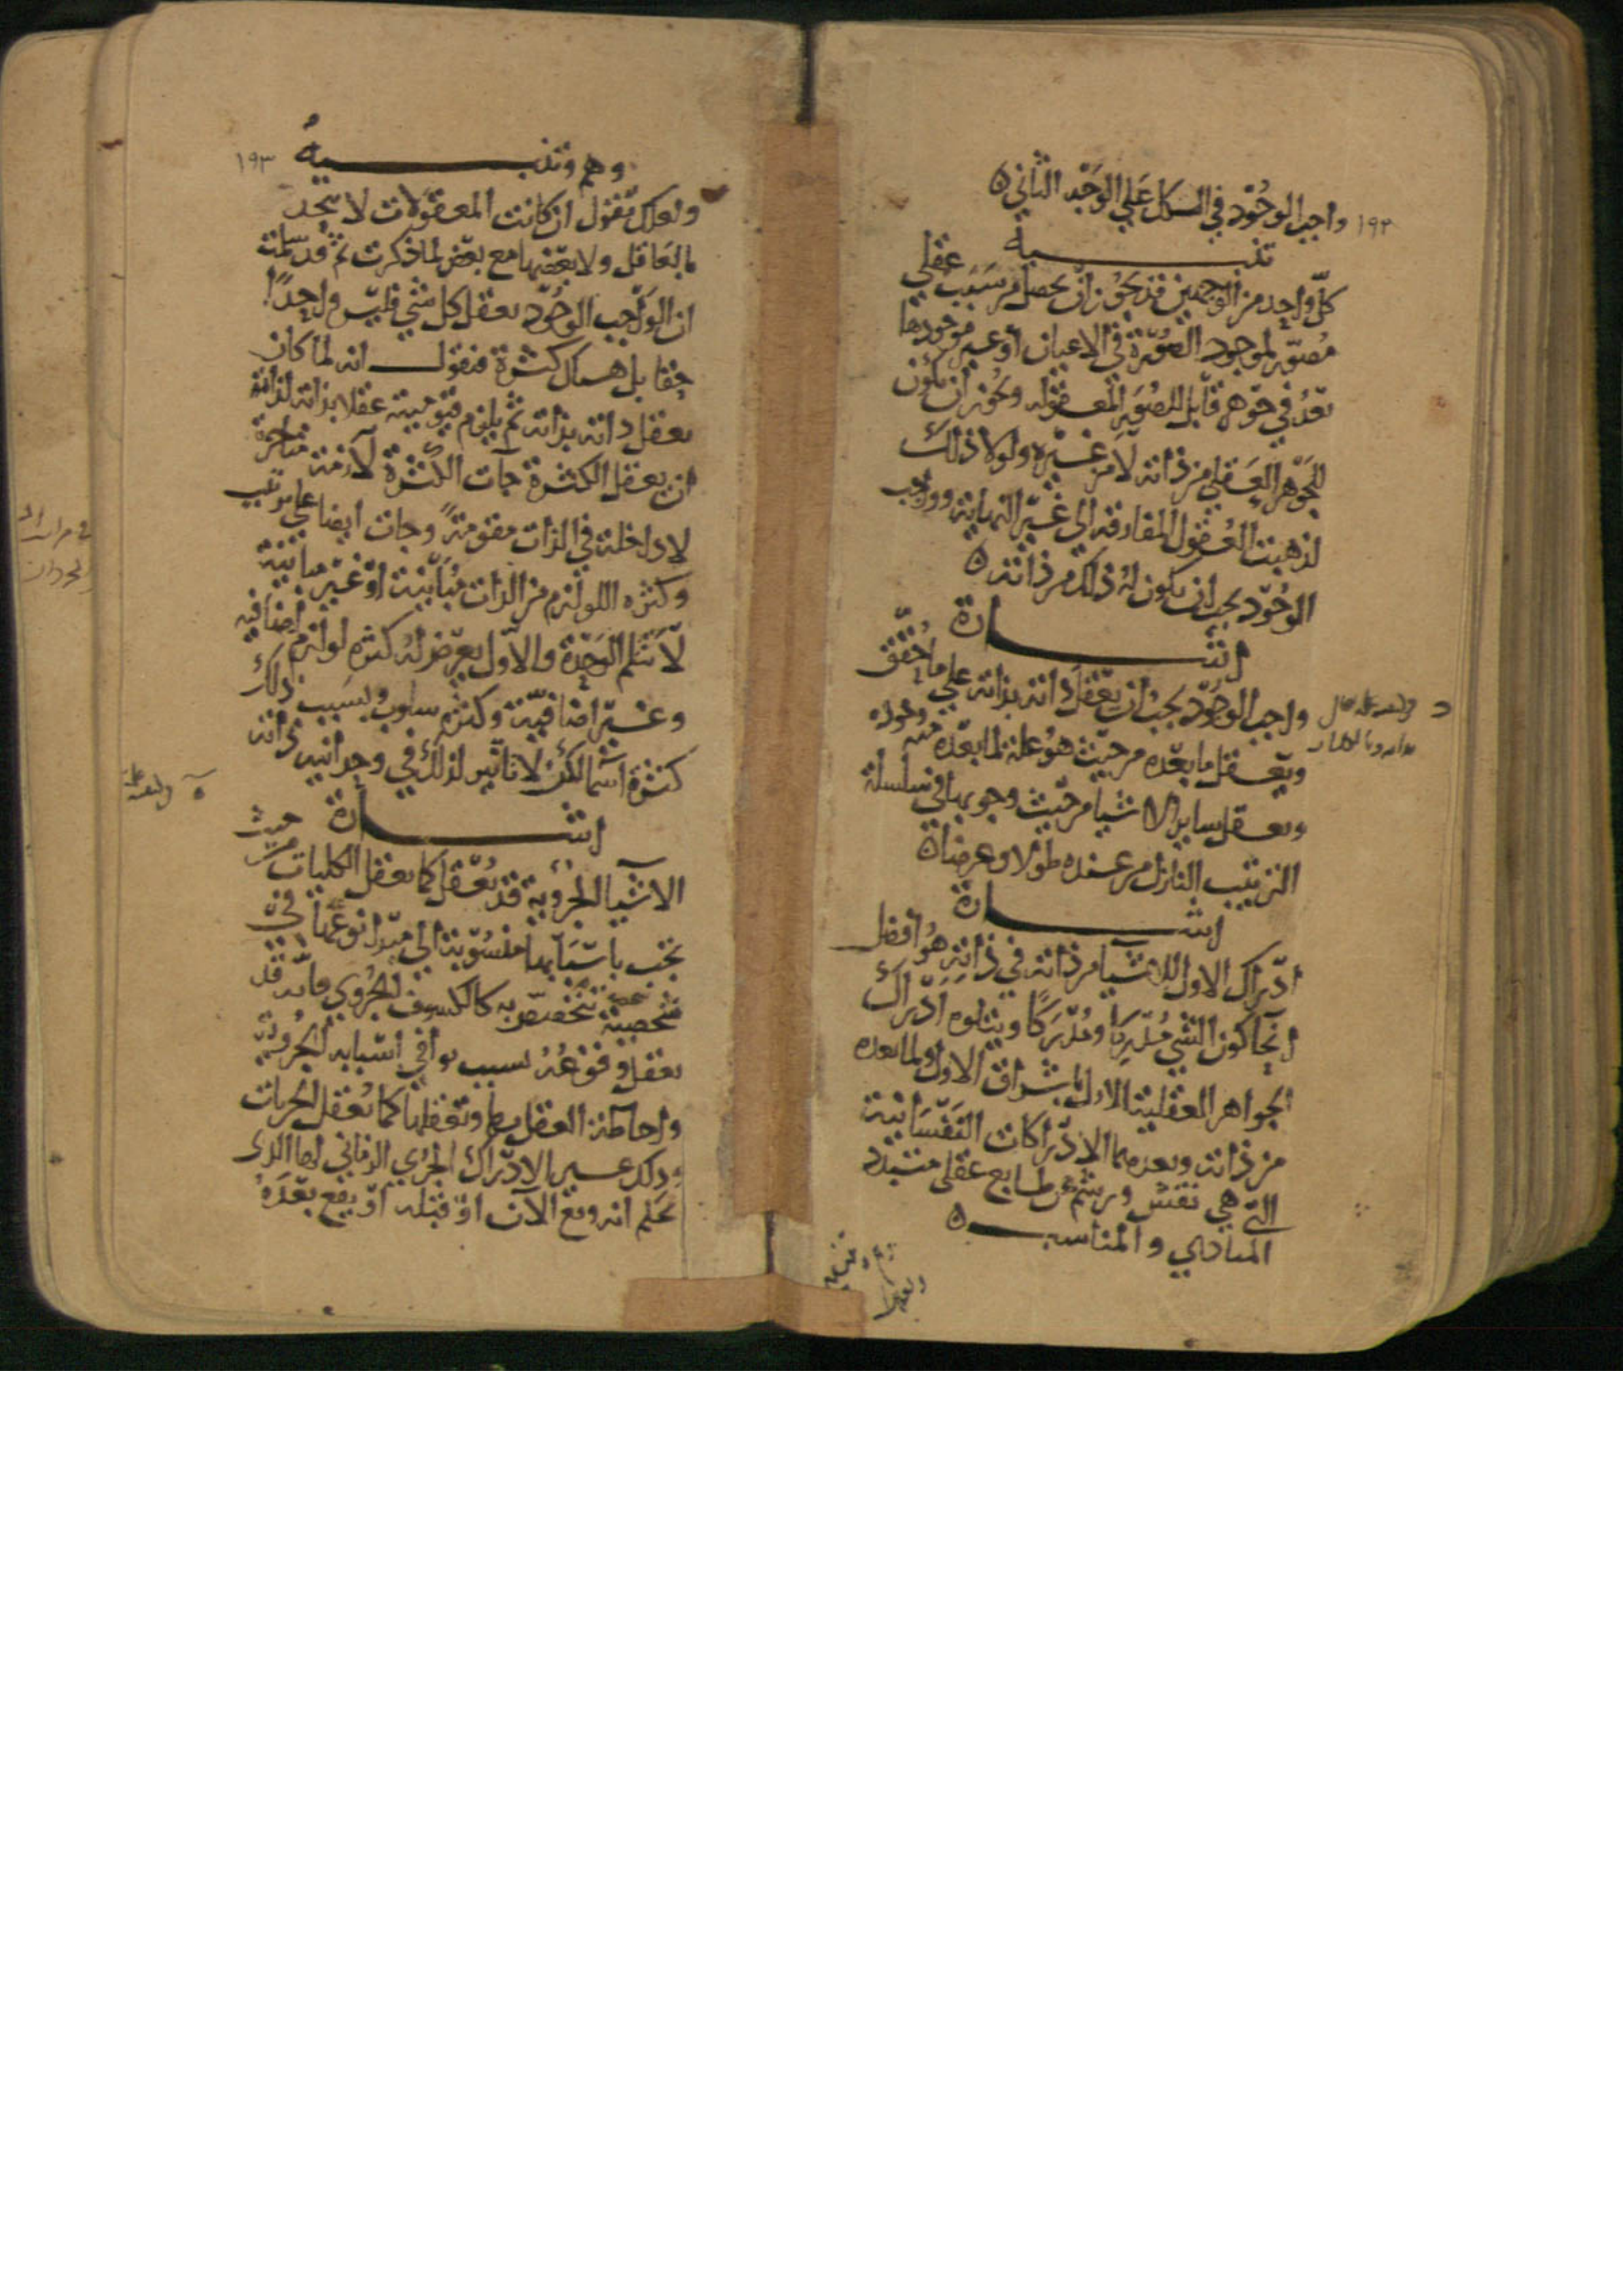 ١٩٢
واجب الوجود في الكل على الوجه الثاني ه
تنبيه
كل واحد من الوجهين قد يجوز ان يحصل من سبب عقلي
مصور لموجود الصورة في الاعيان او غير موجودها
بعد في جوهر قابل للصور المعقوله ويجوز ان يكون
للجوهر العقلي من ذاته لا من غيره ولولا ذلك
لذهبت العقول المفارقة الى غير النهاية وواجب
الوجود يجب ان يكون له ذلك من ذاته ه
اشارة
واجب الوجود يجب ان يعقل ذاته بذاته على ما حقق
ويعقل ما بعده من حيث هو علة لما بعده منه وجوده
ويعقل ساير الاشيا من حيث وجوبها في سلسلة
الترتيب النازل من عنده طولا وعرضا ه
اشارة
ادراك الاول للاشيا من ذاته في ذاته هو افضل
انحا كون الشي مدركا ومدركا ويتلوه ادراك
الجواهر العقلية الاول باشراق الاول ولما بعده
من ذاته وبعدهما الادراكات النفسانية
التي هي نقش ورشم عن طابع عقلي متبدد
المبادي والمناسب ه
١٩٣
وهم وتنبيه
ولعلك تقول ان كانت المعقولات لا تتحد
بالعاقل ولا بعضها مع بعض لما ذكرت ثم قد سلمت
ان الواجب الوجود يعقل كل شي فليس واحدا
حقا بل هناك كثرة فنقول انه لما كان
يعقل ذاته بذاته ثم يلزم قيوميته عقلا بذاته لذاته
ان يعقل الكثرة جات الكثرة لازمة متاخرة
لا داخلة في الذات مقومة وجات ايضا على ترتيب
وكثره اللوازم من الذات مباينة او غير مباينة
لا تثلم الوحدة والاول يعرض له كثره لوازم اضافيه
وغير اضافية وكثره سلوب وبسبب ذلك
كثرة اسما لكن لا تاثير لذلك في وحدانيه ذاته
اشارة
الاشيا الجزويه قد تعقل كما تعقل الكليات من حيث
تجب باسبابها منسوبة الى مبدا نوعه في
شخصه تتخصص به كالكسوف الجزوي فانه قد
يعقل وقوعه بسبب توافي اسبابه الجزوية
واحاطة العقل بها وتعقلها كما تعقل الكليات
وذلك غير الادراك الجزي الزماني لها الذي
يحكم انه وقع الآن او قبله او يقع بعده